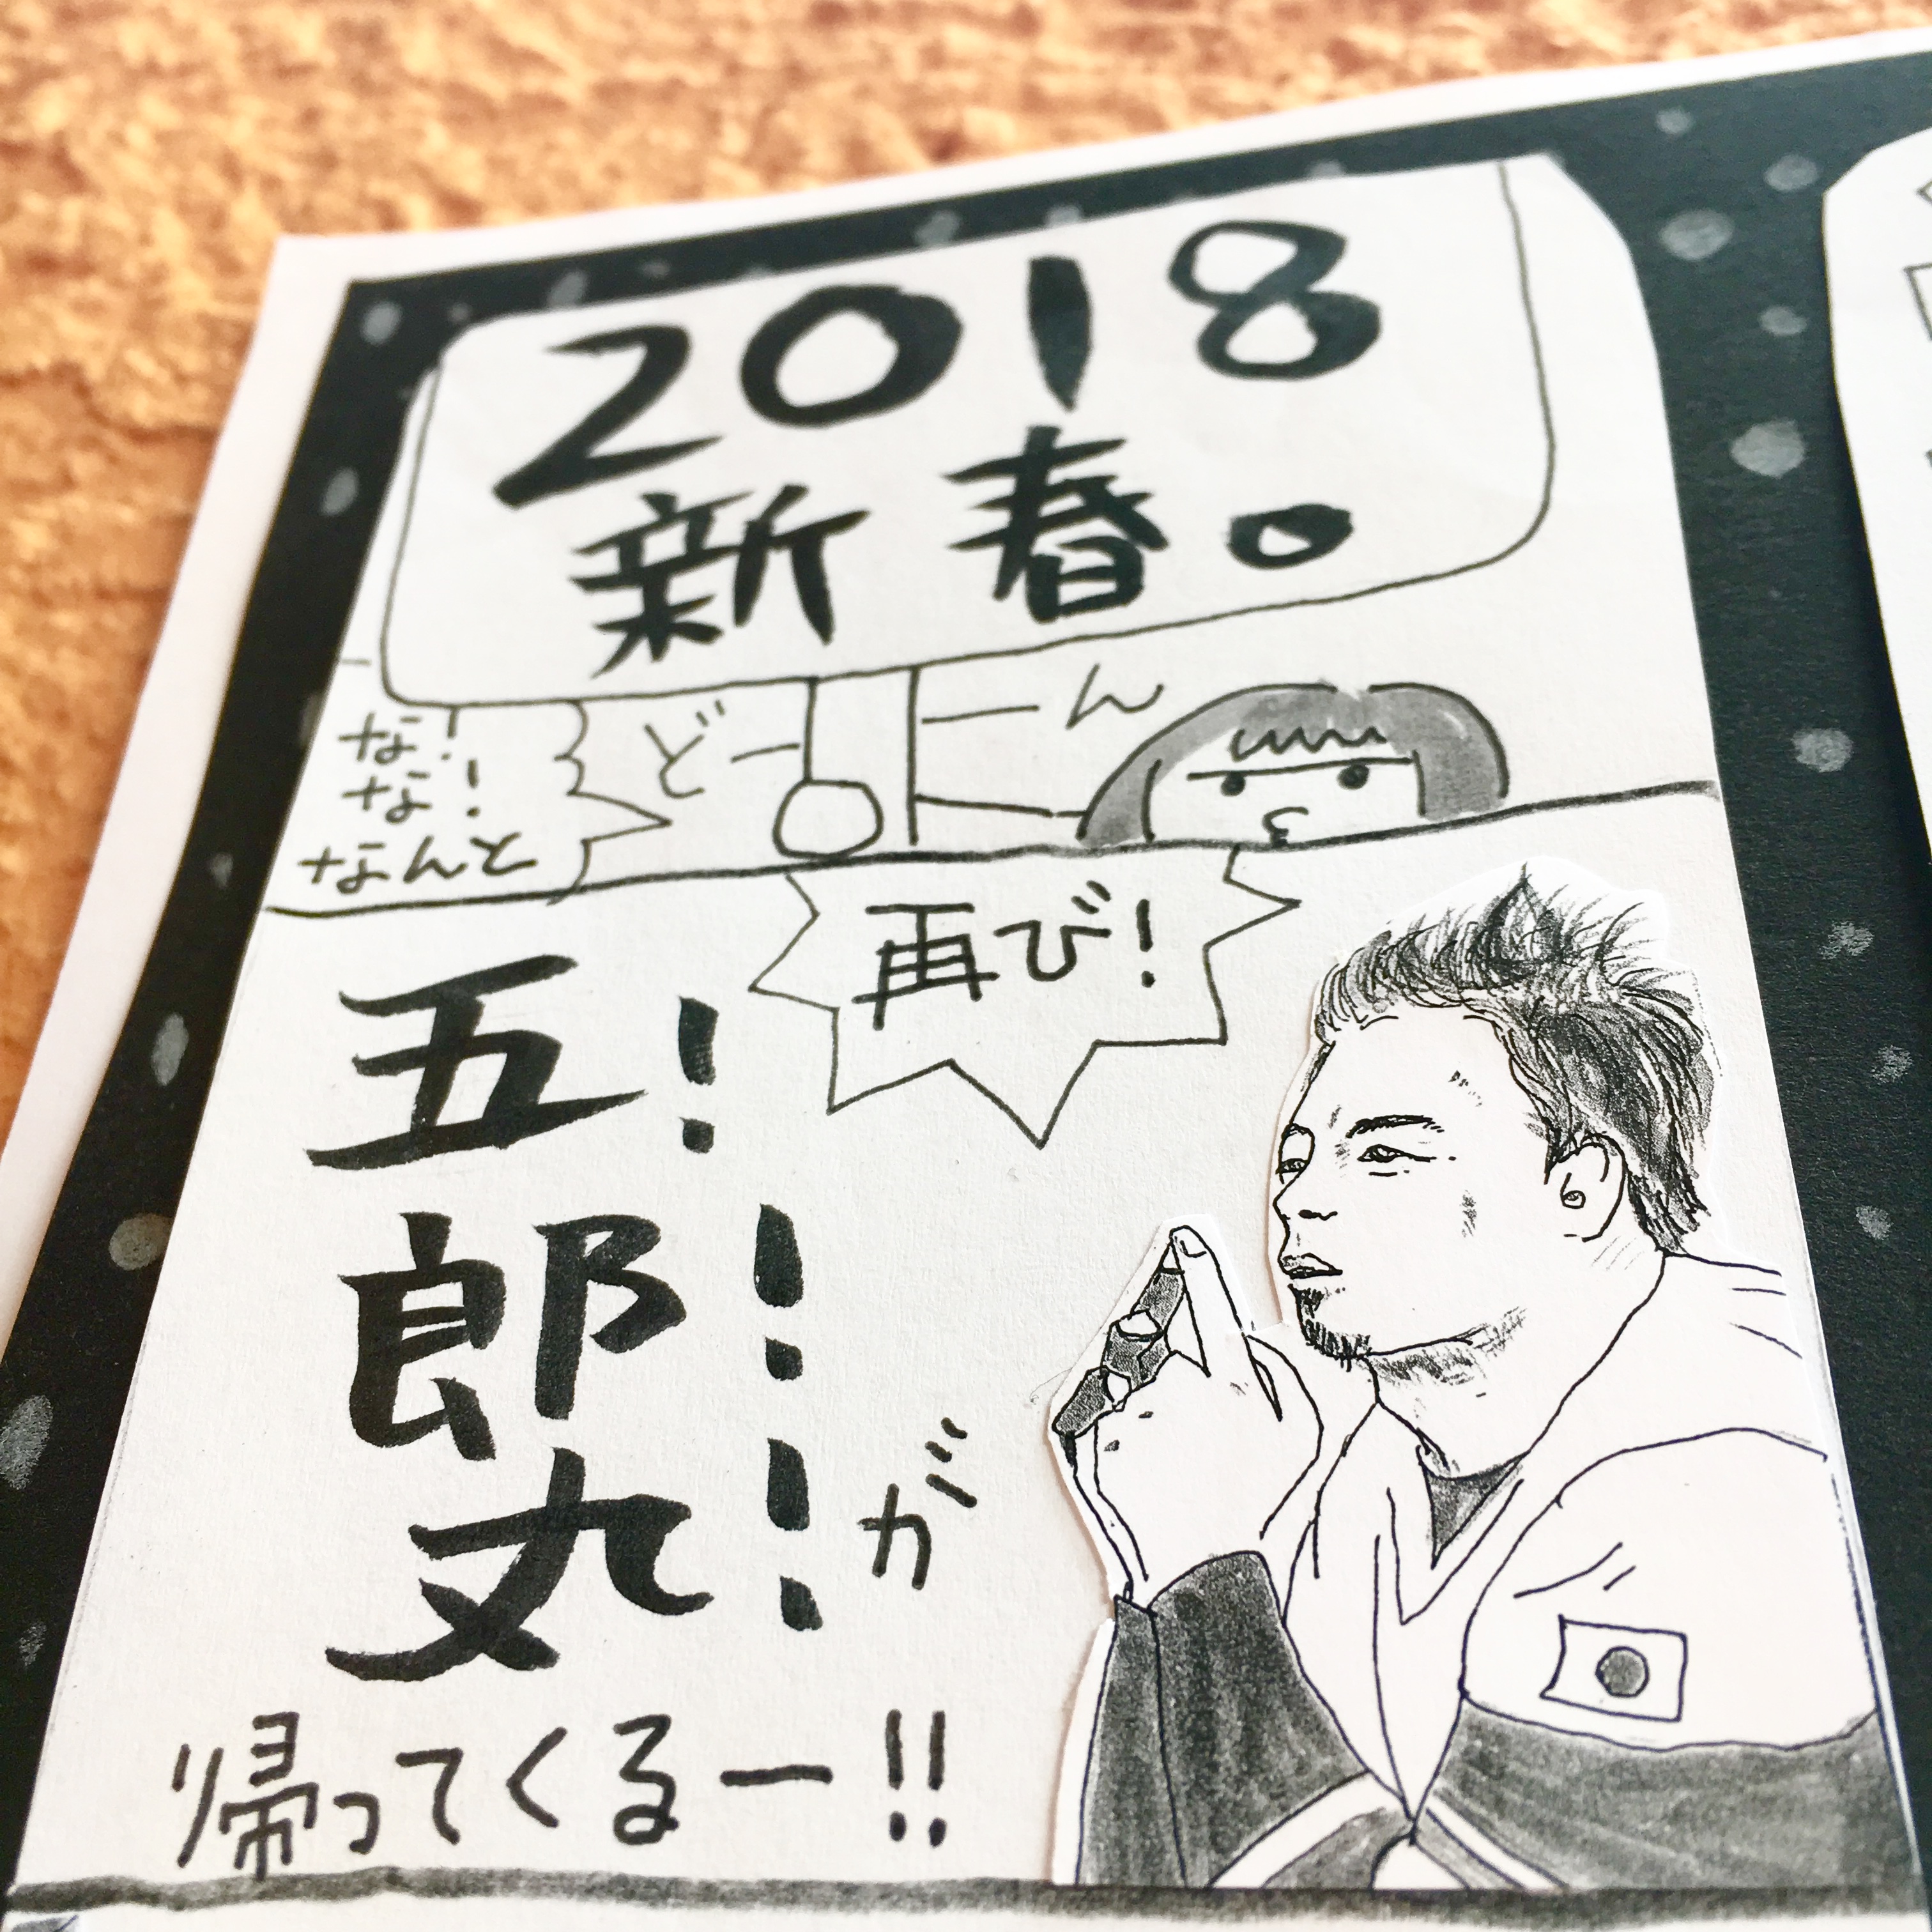 2018
新春。
な!
な!
なんと
どーーん
再び!
五!
郎!
丸!
が
帰ってくるー!!